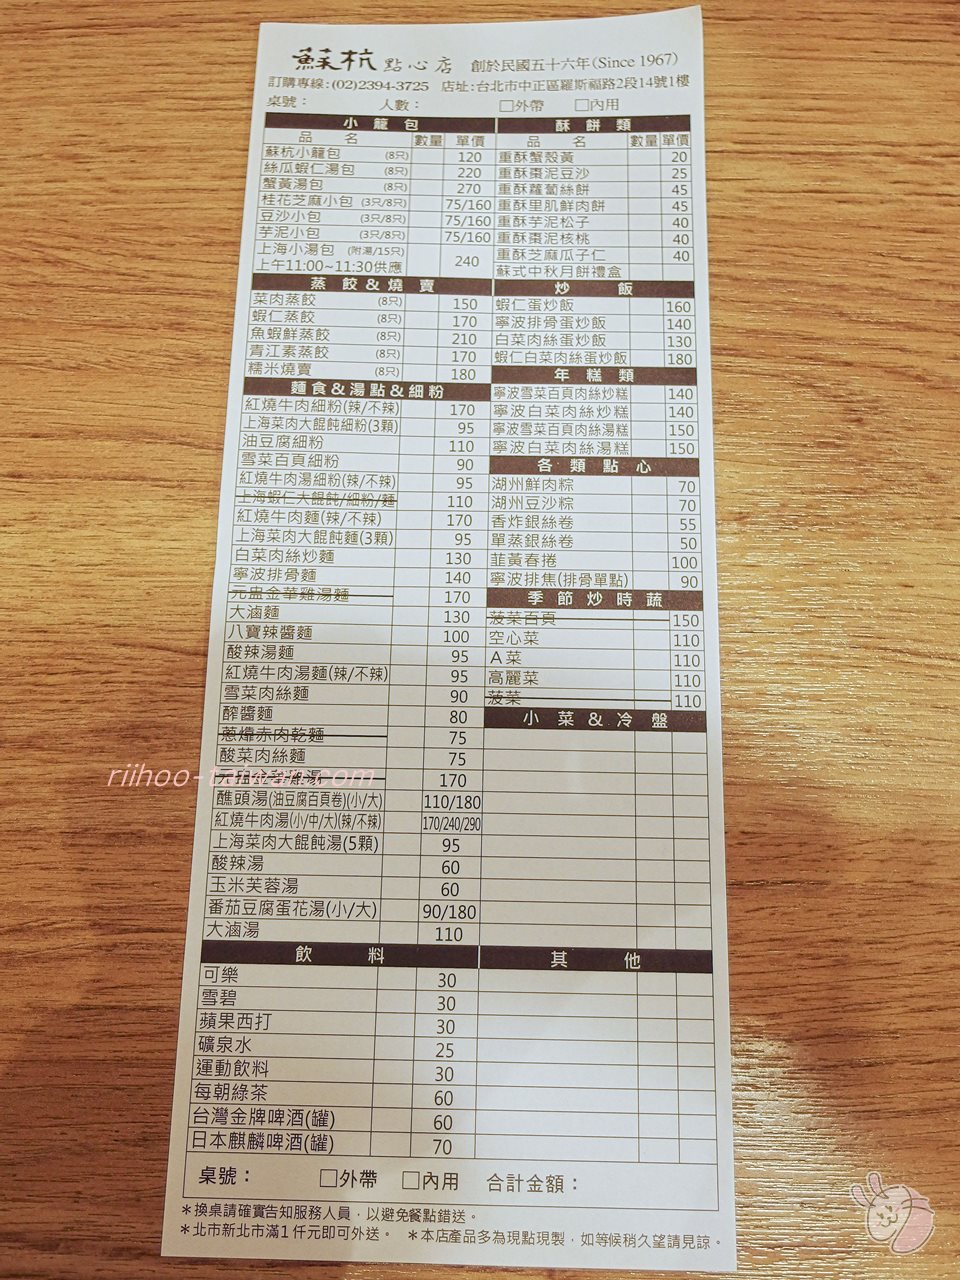 蘇杭 點心店 創於民國五十六年(Since 1967)
訂購專線:(02)2394-3725 店址:台北市中正區羅斯福路2段14號1樓
桌號： 人數： □外帶 □內用
小籠包
品名 數量 單價
蘇杭小籠包 (8只) 120
絲瓜蝦仁湯包 (8只) 220
蟹黃湯包 (8只) 270
桂花芝麻小包 (3只/8只) 75/160
豆沙小包 (3只/8只) 75/160
芋泥小包 (3只/8只) 75/160
上海小湯包 (附湯/15只) 240
上午11:00~11:30供應
蒸餃&燒賣
菜肉蒸餃 (8只) 150
蝦仁蒸餃 (8只) 170
魚蝦鮮蒸餃 (8只) 210
青江素蒸餃 (8只) 170
糯米燒賣 (8只) 180
麵食&湯點&細粉
紅燒牛肉細粉(辣/不辣) 170
上海菜肉大餛飩細粉(3顆) 95
油豆腐細粉 110
雪菜百頁細粉 90
紅燒牛肉湯細粉(辣/不辣) 95
上海蝦仁大餛飩/細粉/麵 110
紅燒牛肉麵(辣/不辣) 170
上海菜肉大餛飩麵(3顆) 95
白菜肉絲炒麵 130
寧波排骨麵 140
元盅金華雞湯麵 170
大滷麵 130
八寶辣醬麵 100
酸辣湯麵 95
紅燒牛肉湯麵(辣/不辣) 95
雪菜肉絲麵 90
醡醬麵 80
蔥㸆赤肉乾麵 75
酸菜肉絲麵 75
元盅金華雞湯 170
醮頭湯(油豆腐百頁卷)(小/大) 110/180
紅燒牛肉湯(小/中/大)(辣/不辣) 170/240/290
上海菜肉大餛飩湯(5顆) 95
酸辣湯 60
玉米芙蓉湯 60
番茄豆腐蛋花湯(小/大) 90/180
大滷湯 110
飲料
可樂 30
雪碧 30
蘋果西打 30
礦泉水 25
運動飲料 30
每朝綠茶 60
台灣金牌啤酒(罐) 60
日本麒麟啤酒(罐) 70
酥餅類
品名 數量 單價
重酥蟹殼黃 20
重酥棗泥豆沙 25
重酥蘿蔔絲餅 45
重酥里肌鮮肉餅 45
重酥芋泥松子 40
重酥棗泥核桃 40
重酥芝麻瓜子仁 40
蘇式中秋月餅禮盒
炒飯
蝦仁蛋炒飯 160
寧波排骨蛋炒飯 140
白菜肉絲蛋炒飯 130
蝦仁白菜肉絲蛋炒飯 180
年糕類
寧波雪菜百頁肉絲炒糕 140
寧波白菜肉絲炒糕 140
寧波雪菜百頁肉絲湯糕 150
寧波白菜肉絲湯糕 150
各類點心
湖州鮮肉粽 70
湖州豆沙粽 70
香炸銀絲卷 55
單蒸銀絲卷 50
韮黃春捲 100
寧波排焦(排骨單點) 90
季節炒時蔬
菠菜百頁 150
空心菜 110
A菜 110
高麗菜 110
菠菜 110
小菜&冷盤
其他
桌號： □外帶 □內用 合計金額：
＊換桌請確實告知服務人員，以避免餐點錯送。
＊北市新北市滿1仟元即可外送。 ＊本店產品多為現點現製，如等候稍久望請見諒。
riihoo-taiwan.com